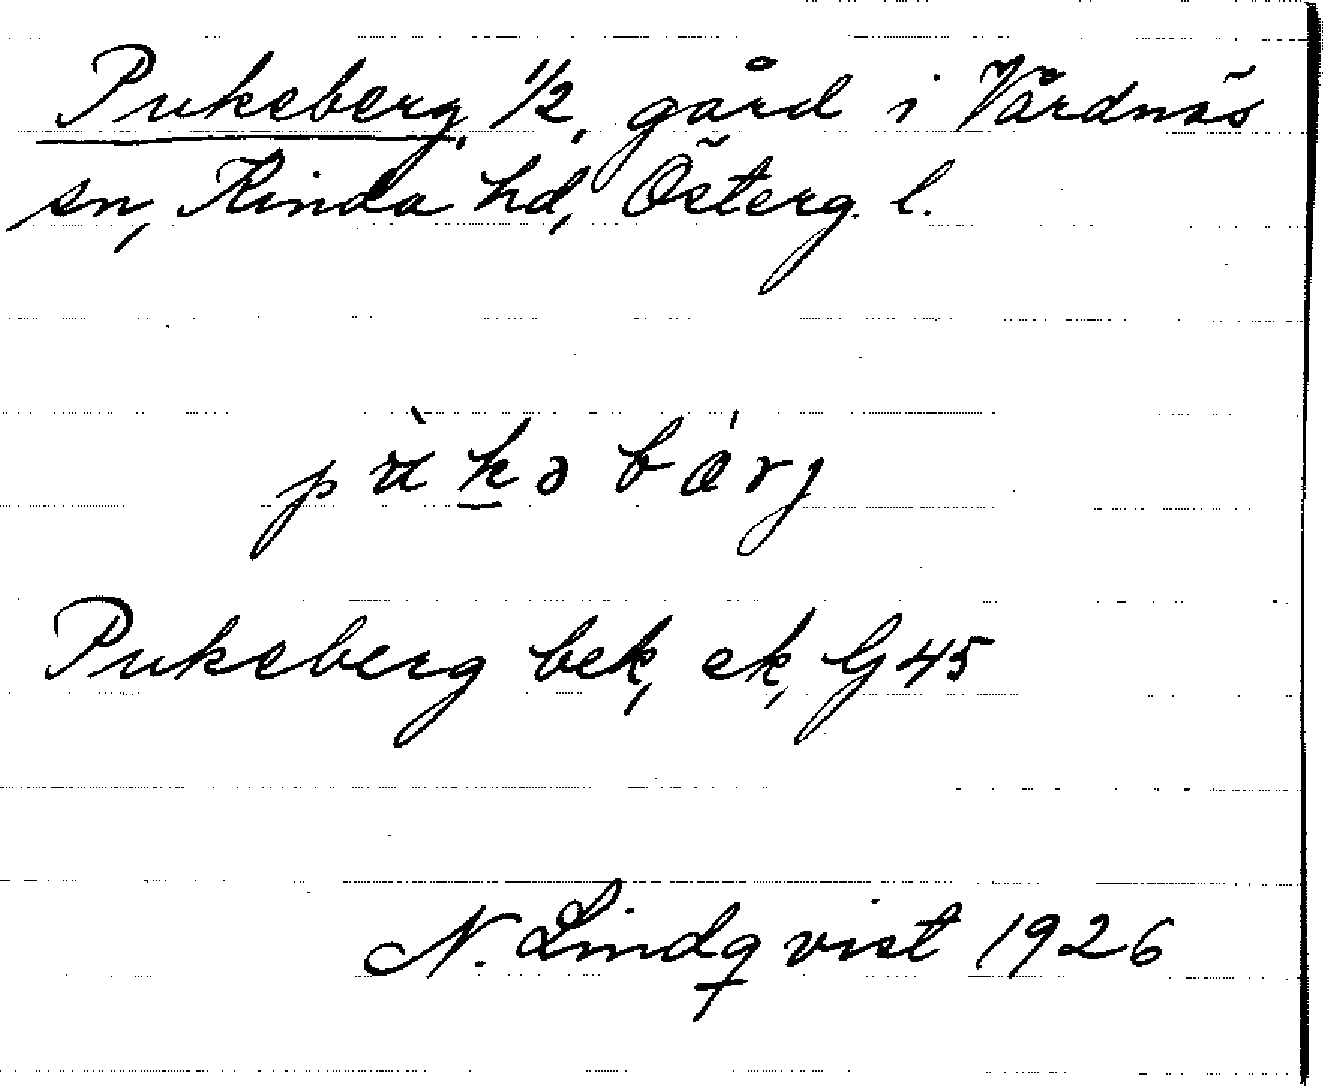 Pukeberg, 1/2, gård i Vårdnäs
sn, Kinda hd, Österg. l.
pùkə bárj
Pukeberg bek, ek, G 45
N. Lindqvist 1926